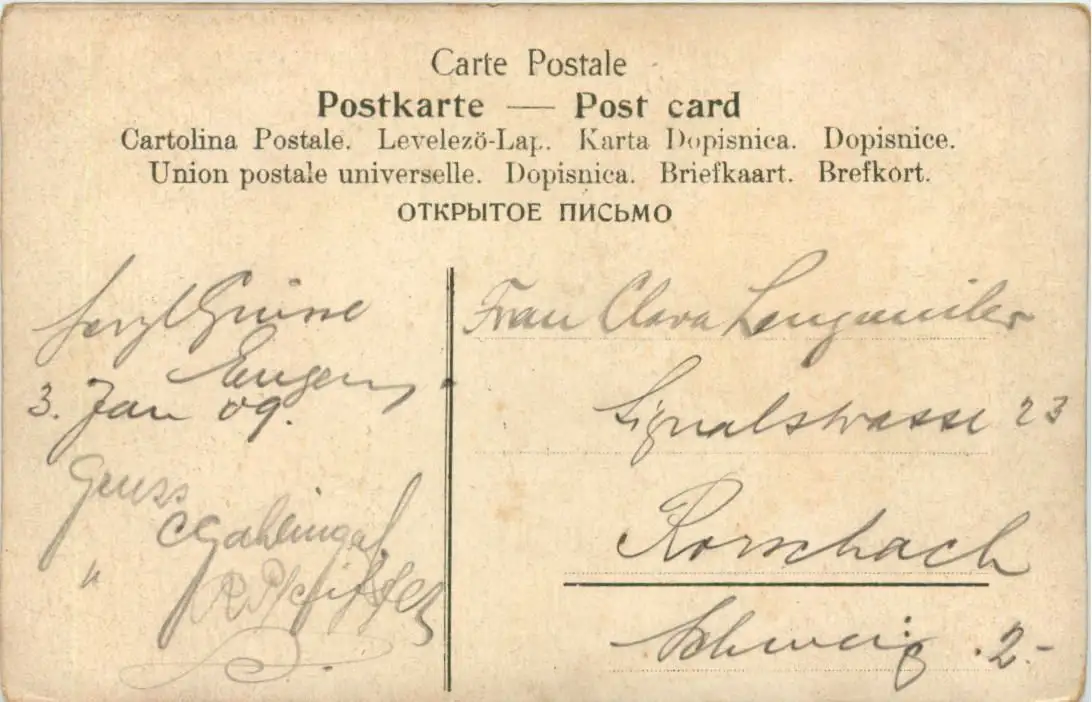 Carte Postale
Postkarte — Post card
Cartolina Postale. Levelezö-Lap. Karta Dopisnica. Dopisnice.
Union postale universelle. Dopisnica. Briefkaart. Brefkort.
ОТКРЫТОЕ ПИСЬМО
Herzl Grüsse
Eugen
3. Jan 09.
Gruss
"
R. Pfeiffer
Frau Clara
Signalstrasse 23
Rorschach
Schweiz .2.-